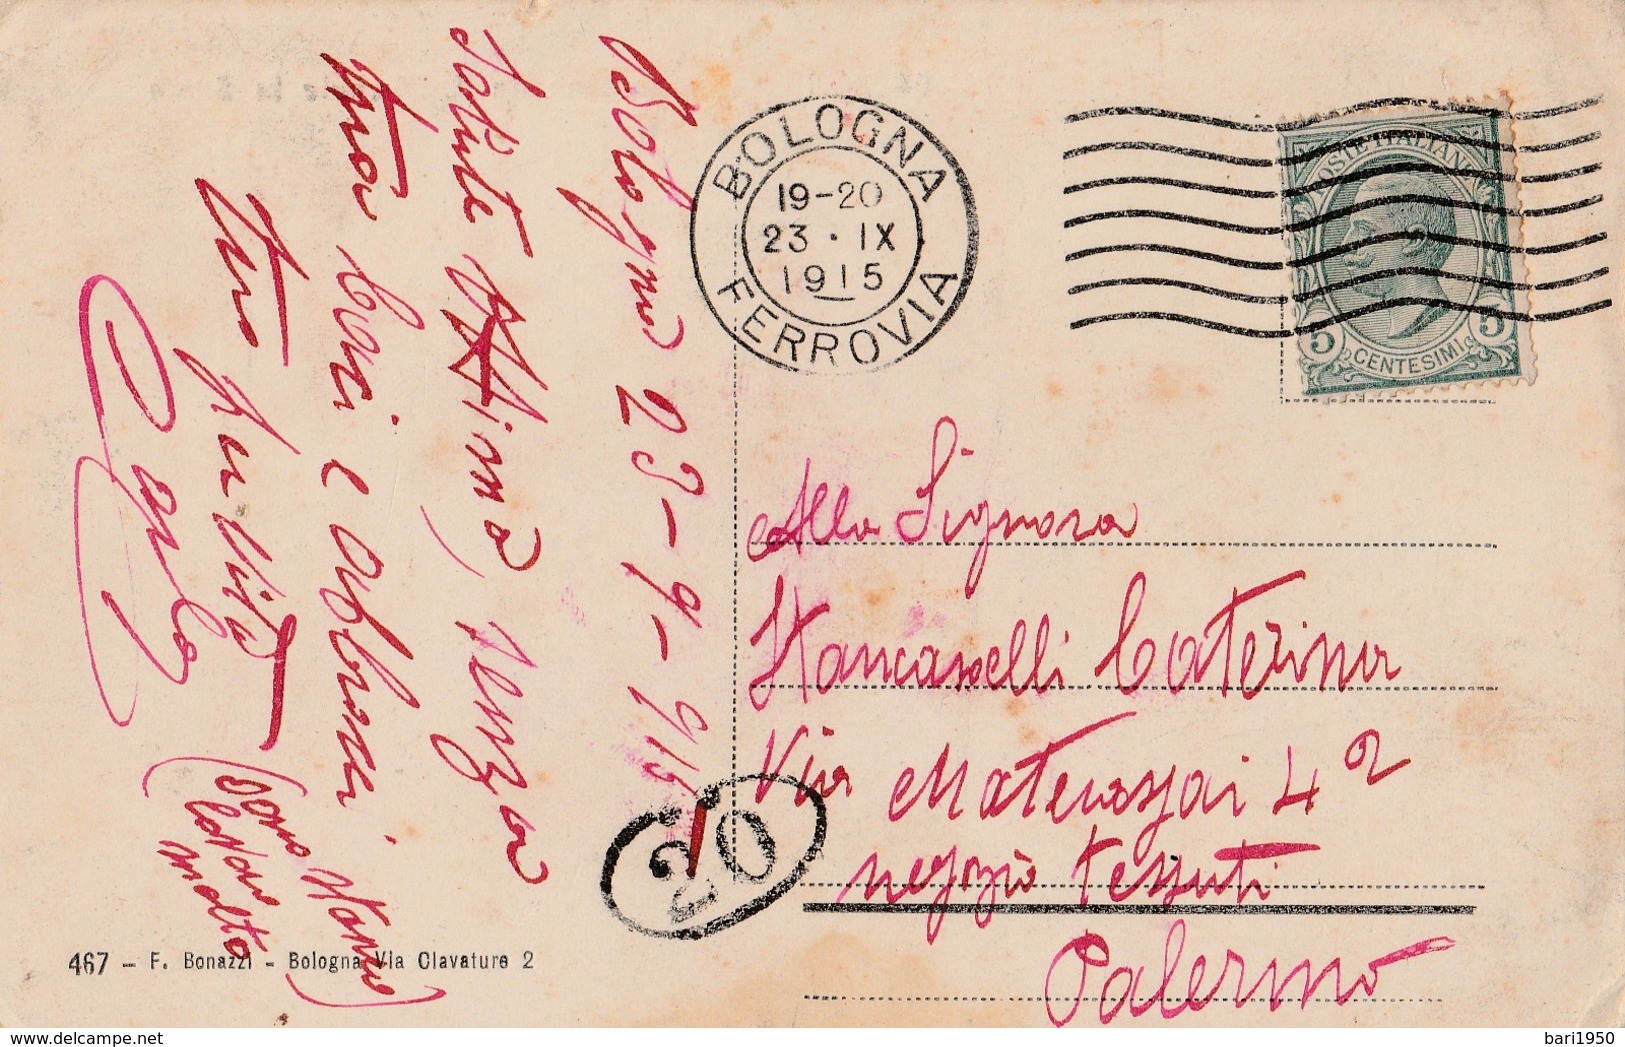 BOLOGNA
19-20
23 · IX
1915
FERROVIA
POSTE ITALIANE
5 5
CENTESIMI
Bologna 23-9-915
Salute ottima, senza
tua Baci e abbracci
tuo per vita
Carlo
(sono stanco
lavoro
molto)
Alla Signora
Stancanelli Caterina
Via Materassai 42
negozio tessuti
Palermo
20
467 – F. Bonazzi – Bologna Via Clavature 2
delcampe.net
bari1950